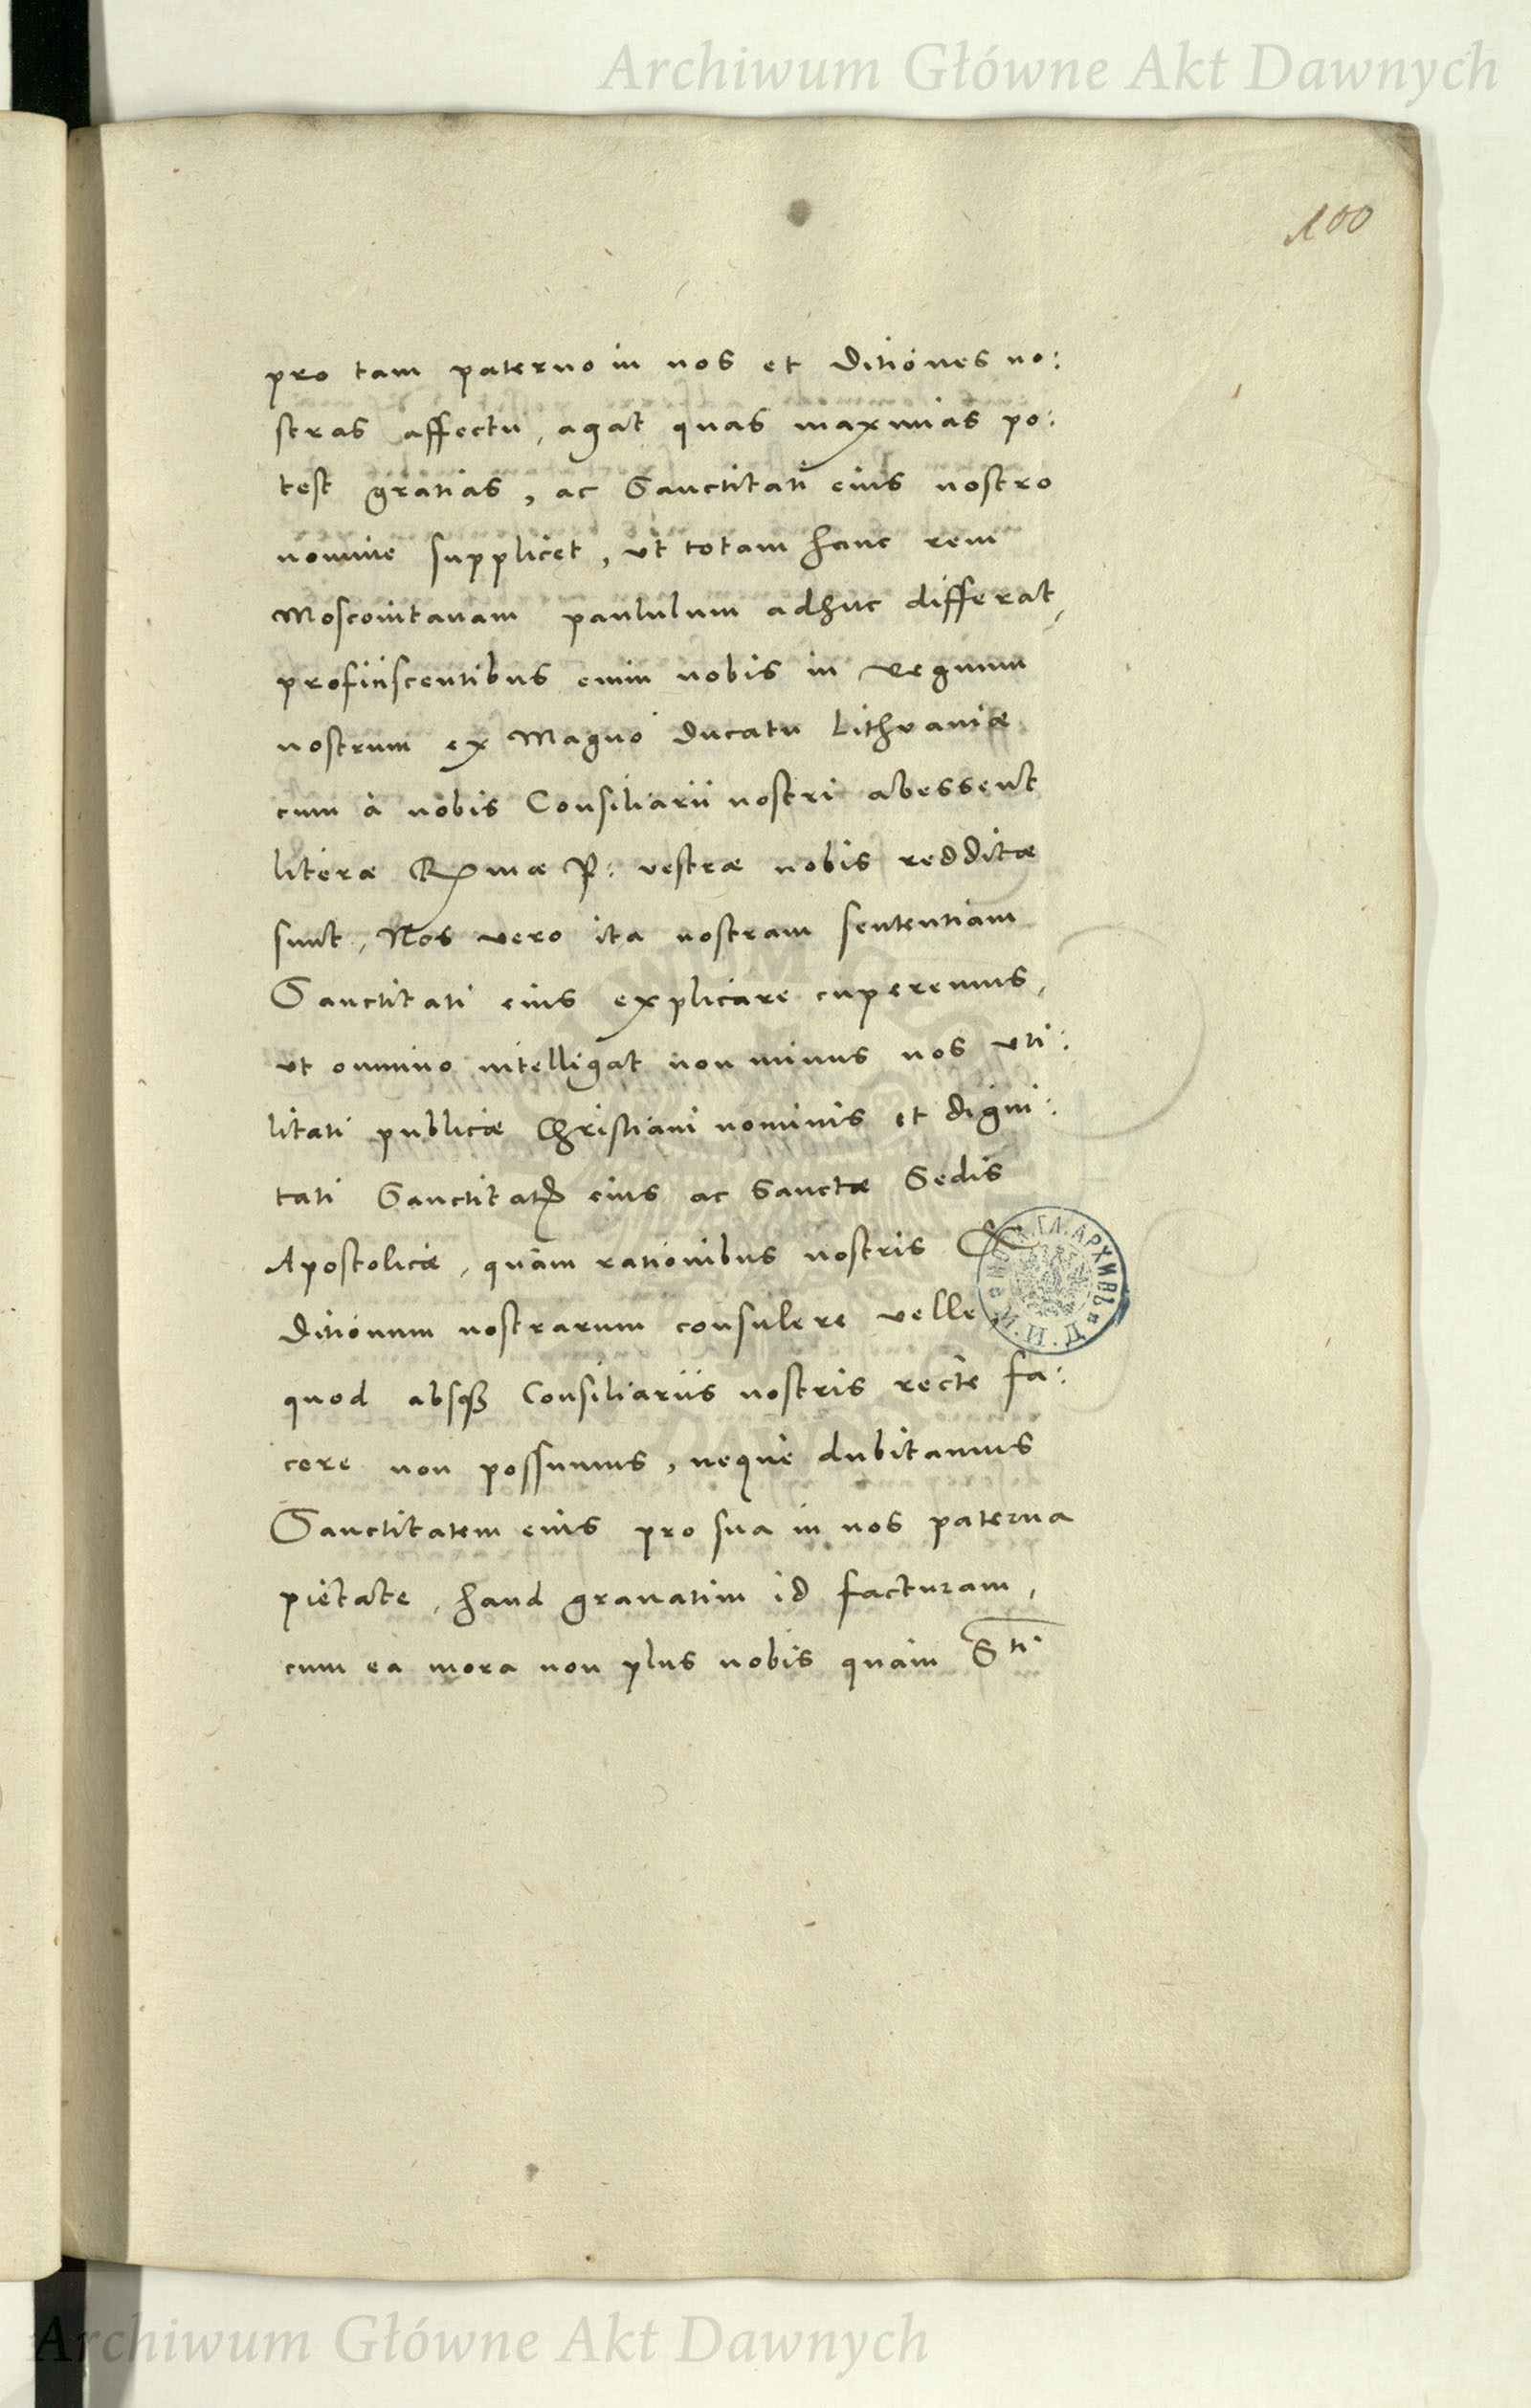 Archiwum Główne Akt Dawnych
100
pro tam paterno in nos et ditiones no:
stras affectu, agat quas maximas po:
test gratias, ac Sanctitati eius nostro
nomine supplicet, ut totam hanc rem
Moscouitanam paululum adhuc differat,
proficiscentibus enim nobis in regnum
nostrum ex Magno ducatu Lithvaniæ
cum à nobis Consiliarii nostri abessent
literæ Rmæ P: vestræ nobis redditæ
sunt, Nos vero ita nostram sententiam
Sanctitati eius explicare cuperemus,
ut omnino intelligat non minus nos uti:
litati publicæ Christiani nominis et digni:
tati Sanctitatis eius ac Sanctæ Sedis
Apostolicæ, quàm rationibus nostris &
ditionum nostrarum consulere velle,
quod absque Consiliariis nostris rectè fa:
cere non possumus, neque dubitamus
Sanctitatem eius pro sua in nos paterna
pietate, haud grauatim id facturam,
cum ea mora non plus nobis quàm Sti
Archiwum Główne Akt Dawnych